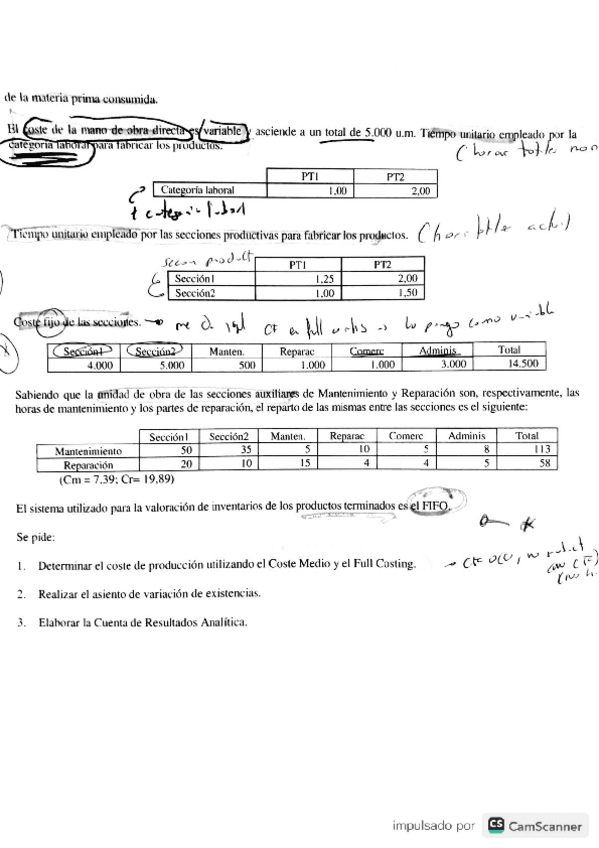 de la materia prima consumida.
El coste de la mano de obra directa es variable y asciende a un total de 5.000 u.m. Tiempo unitario empleado por la
categoría laboral para fabricar los productos.
PT1 PT2
Categoría laboral 1,00 2,00
Tiempo unitario empleado por las secciones productivas para fabricar los productos.
PT1 PT2
Sección1 1,25 2,00
Sección2 1,00 1,50
Coste fijo de las secciones.
Sección1 Sección2 Manten. Reparac Comerc Adminis. Total
4.000 5.000 500 1.000 1.000 3.000 14.500
Sabiendo que la unidad de obra de las secciones auxiliares de Mantenimiento y Reparación son, respectivamente, las
horas de mantenimiento y los partes de reparación, el reparto de las mismas entre las secciones es el siguiente:
Sección1 Sección2 Manten. Reparac Comerc Adminis Total
Mantenimiento 50 35 5 10 5 8 113
Reparación 20 10 15 4 4 5 58
(Cm = 7.39; Cr= 19,89)
El sistema utilizado para la valoración de inventarios de los productos terminados es el FIFO.
Se pide:
1. Determinar el coste de producción utilizando el Coste Medio y el Full Costing.
2. Realizar el asiento de variación de existencias.
3. Elaborar la Cuenta de Resultados Analítica.
impulsado por CS CamScanner